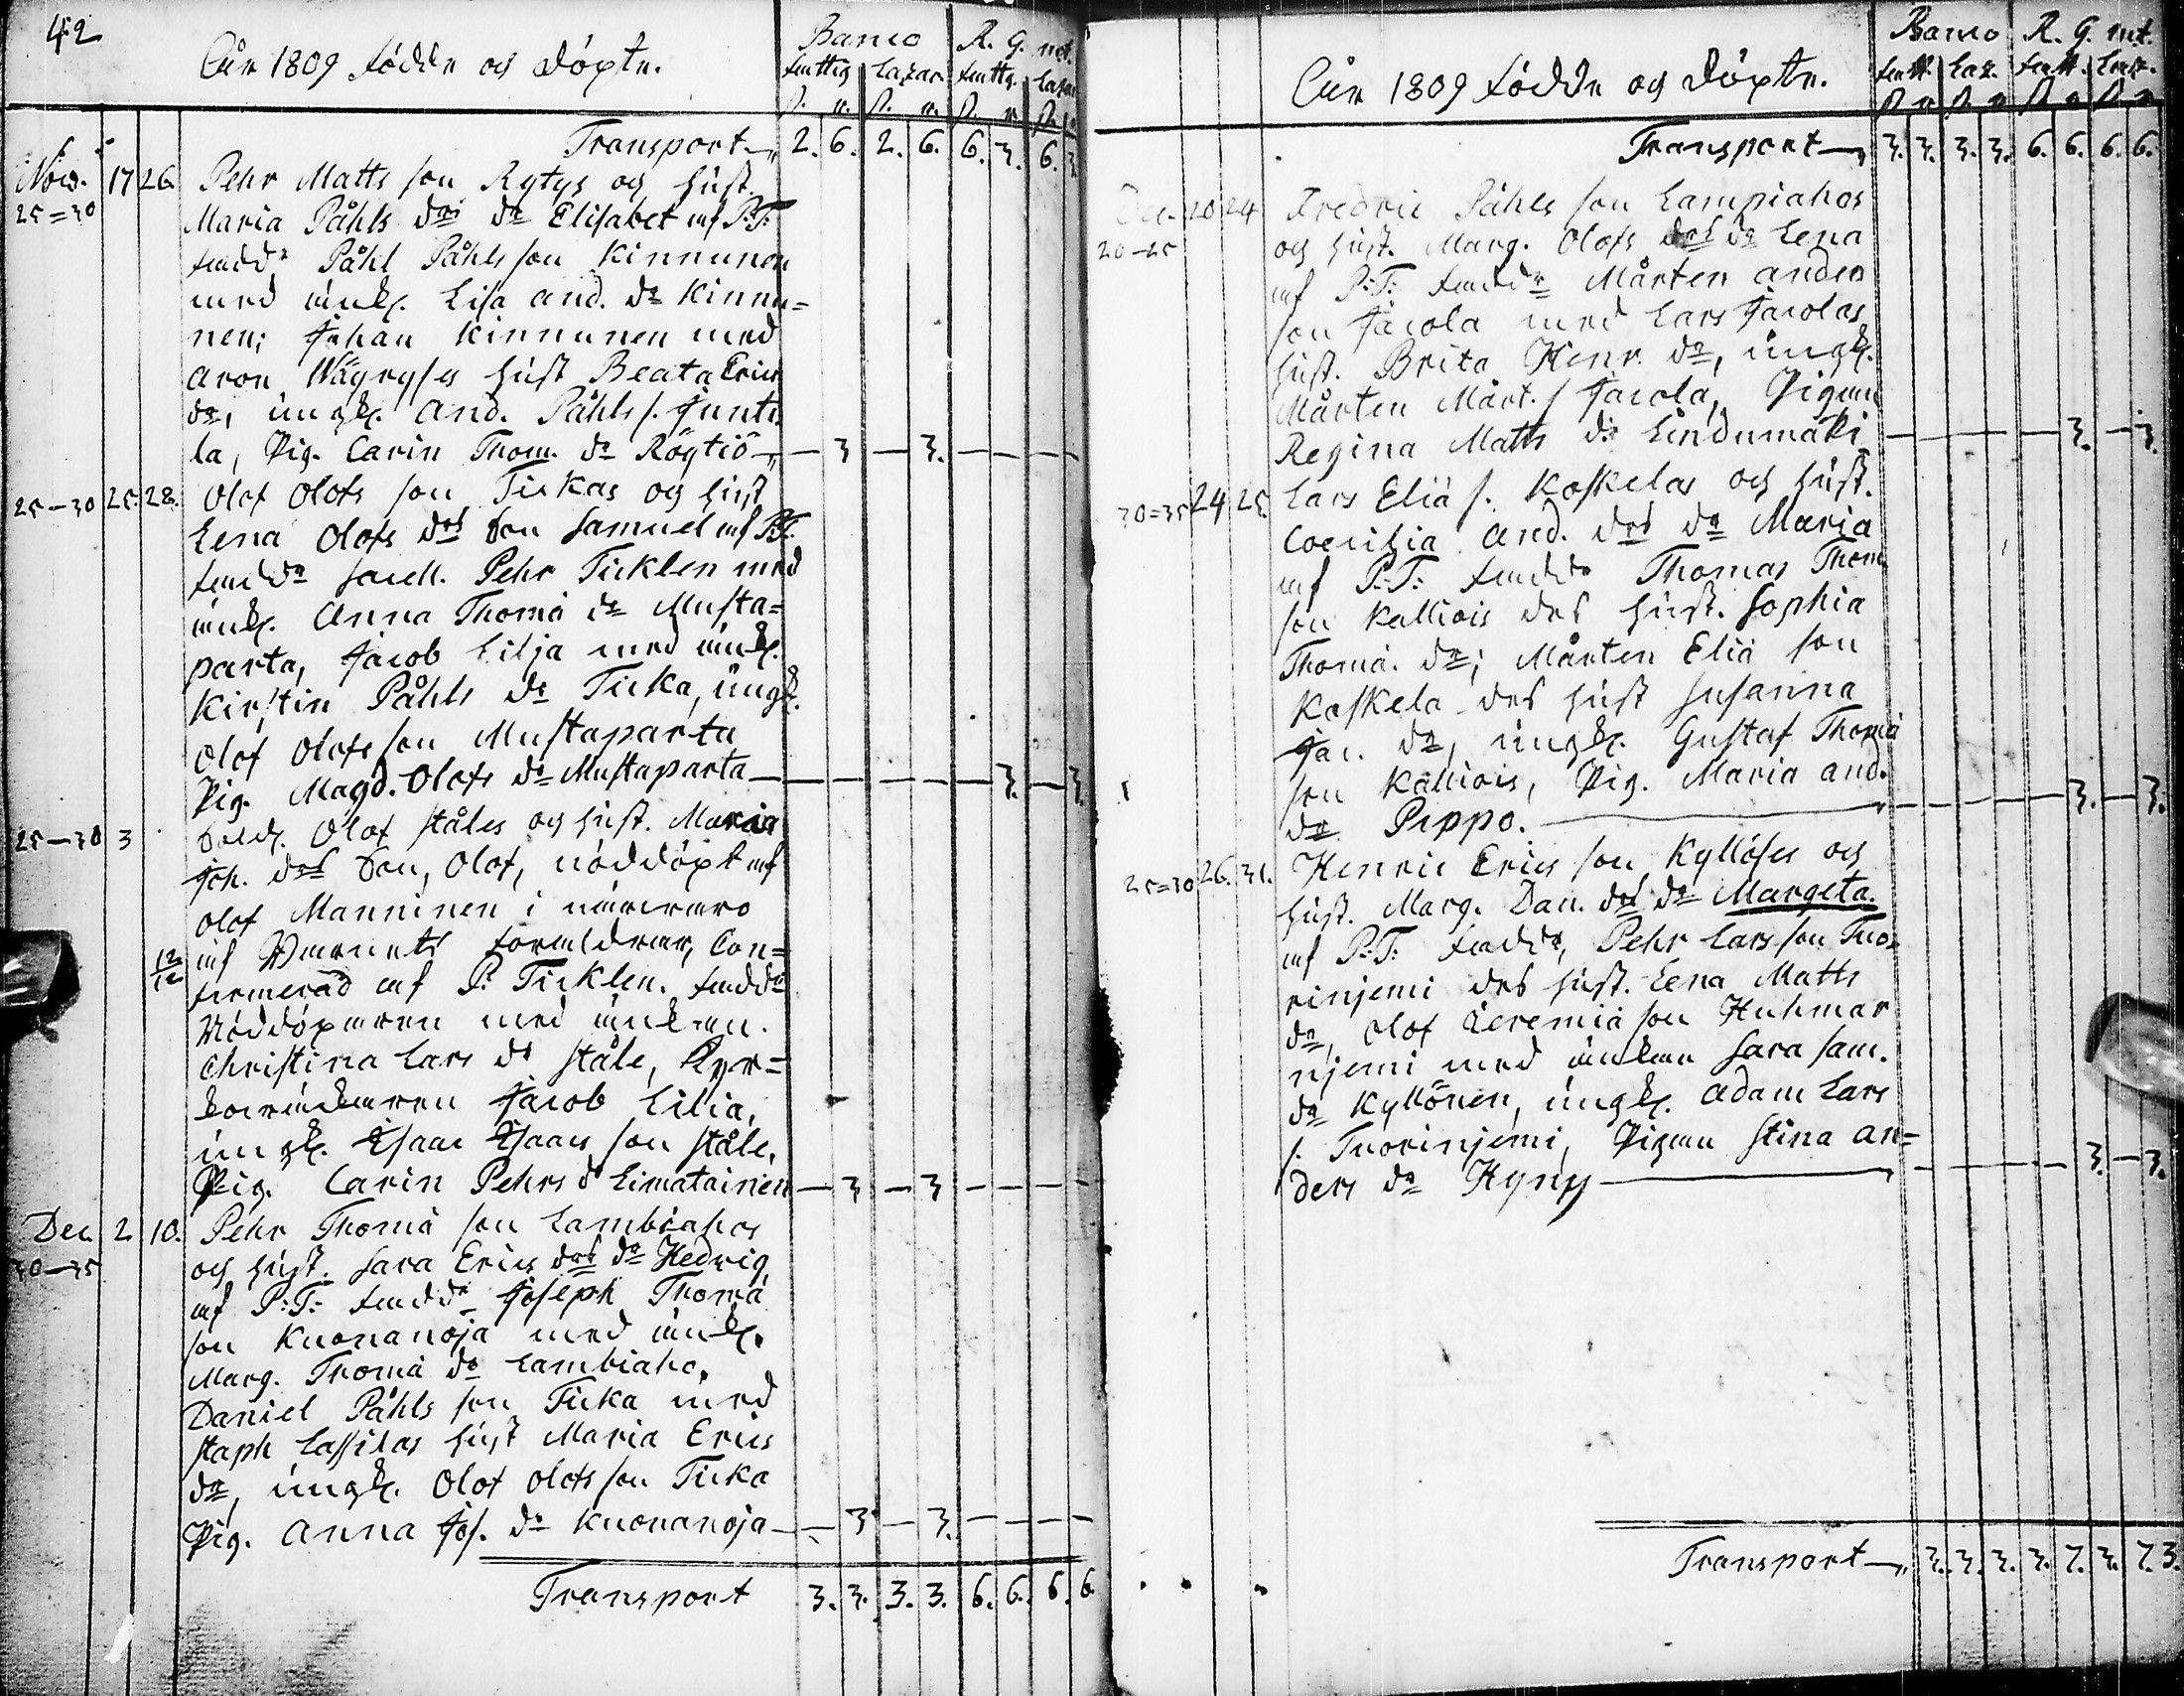 42
Åår 1809 födde och döpte.
Banco R. G. mt.
fattig Lazar. fattig. Lazar
s. r. s. r. s. r. s. r.
Transport 2. 6. 2. 6. 6. 3. 6. 3
Nov. 17 26. Pehr Matts son Rytys och hust.
25=30 Maria Påhls dr: dr Elisabet af P:T:
fadd: Påhl Påhls son Kinnunen
med änk. Lisa And. dr Kinnu=
nen; Johan Kinnunen med
Aron Wäyryses hust Beata Erics
dr, ungk. And. Påhls s. Junti
la, Pig. Carin Thom. dr Röytiö — 3 — 3. — — — —
25—30 25. 28. Olof Olofs son Tickas och hust
Lena Olofs drs Son Samuel af P:T.
fadd: Sacell. Pehr Ticklen med
änk. Anna Thomä dr Musta=
parta, Jacob Lilja med änk.
Kirstin Påhls dr Ticka, ungk.
Olof Olofs son Mustaparta
Pig. Magd. Olofs dr Mustaparta — — — — — 3. — 3.
25—30 3 Sold. Olof Ståles och hust. Maria
Joh. drs Son, Olof, nöddöpt af
Olof Manninen i närvaro
12/12 af Barnets föräldrar, Con=
firmerad af P. Ticklen. fadd:
Nöddöparen med änkan.
Christina Lars dr Ståle, Kyr=
koväcktaren Jacob Lilia,
ungk. Isaac Isaacs son Ståle,
Pig. Carin Pehrs d Limatainen — 3 — 3 — — — —
Dec. 2 10. Pehr Thomä son Lambiahos
30—35 och hust. Sara Erics drs dr Hedvig
af P:T: fadd: Joseph Thomä
son Kuonanoja med änk.
Marg. Thomä dr Lambiaho,
Daniel Påhls son Ticka med
Staph Lassilas hust Maria Erics
dr, ungk. Olof Olofs son Ticka
Pig. Anna Jos. dr Kuonanoja — 3 — 3. — — — —
Transport 3. 3. 3. 3. 6. 6. 6. 6.
Åår 1809 födde och döpte.
Banco R. G. mt.
fatt. Laz. fatt. Laz.
s r s r s r s r
Transport 3. 3. 3. 3. 6. 6. 6. 6.
Dec. 20 24 Fredric Påhls son Lampiahos
20—25 och hust. Marg. Olofs drs dr Lena
af P:T: fadd: Mårten Anders
son Jacola med Lars Jacolas
hust. Brita Henr. dr, ungk.
Mårten Mårt. s Jacola, Pigan
Regina Matts dr Lindumäki — — — — — 3. — 3.
30=35 24 25. Lars Eliä s. Koskelas och hust.
Coecilia And. drs dr Maria
af P:T: fadd: Thomas Thom
son Kalliois des hust. Sophia
Thomä. dr; Mårten Eliä son
Koskela des hust Susanna
Jac. dr, ungk. Gustaf Thomä
son Kalliois, Pig. Maria And.
dr Pippo. — — — — — 3. — 3.
25=30 26. 31. Henric Erics son Kyllöses och
hust. Marg. Dan. drs dr Margeta.
af P:T: fadd:, Pehr Lars son Tuo=
rinjemi des hust. Lena Matts
dr, Olof Jeremiä son Huhmar
njemi med änkan Sara Sam.
dr Kyllönen, ungk. Adam Lars
s. Tuorinjemi, Pigan Stina An=
ders dr Hyny — — — — — 3. — 3.
Transport 3. 3. 3. 3. 7. 3. 7. 3.